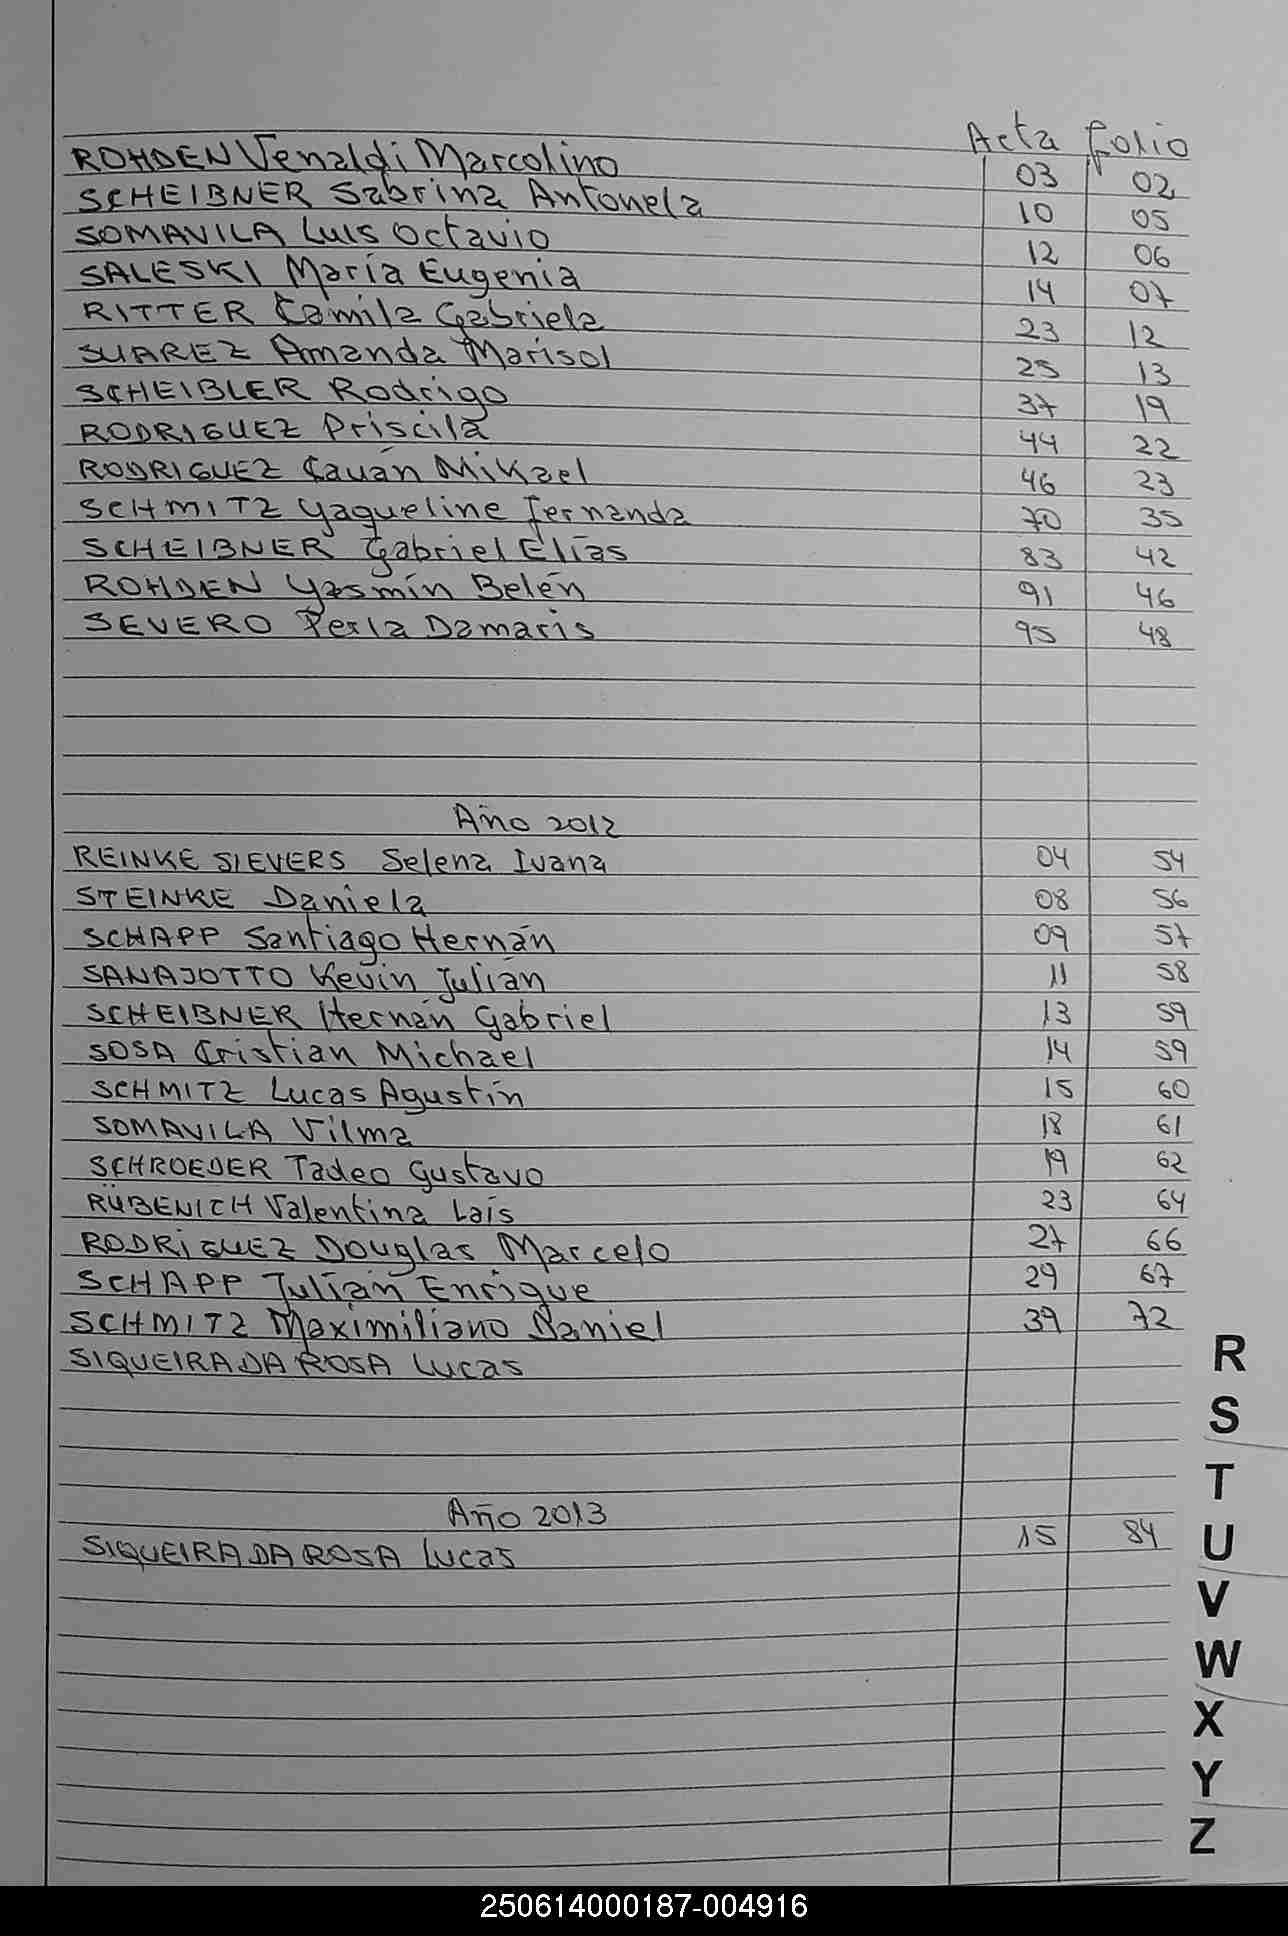 Acta folio
ROHDEN Venaldi Marcolino 03 02
SCHEIBNER Sabrina Antonela 10 05
SOMAVILA Luis Octavio 12 06
SALESKI María Eugenia 14 07
RITTER Camila Gabriela 23 12
SUAREZ Amanda Marisol 25 13
SCHEIBLER Rodrigo 37 19
RODRIGUEZ Priscila 44 22
RODRIGUEZ Cauán Mikael 46 23
SCHMITZ Yaqueline Fernanda 70 35
SCHEIBNER Gabriel Elías 83 42
ROHDEN Yasmín Belén 91 46
SEVERO Perla Damaris 95 48
Año 2012
REINKE SIEVERS Selena Ivana 04 54
STEINKE Daniela 08 56
SCHAPP Santiago Hernán 09 57
SANAJOTTO Kevin Julián 11 58
SCHEIBNER Hernán Gabriel 13 59
SOSA Cristian Michael 14 59
SCHMITZ Lucas Agustín 15 60
SOMAVILA Vilma 18 61
SCHROEDER Tadeo Gustavo 19 62
RÜBENICH Valentina Laís 23 64
RODRIGUEZ Douglas Marcelo 27 66
SCHAPP Julián Enrique 29 67
SCHMITZ Maximiliano Daniel 39 72
SIQUEIRA DA ROSA Lucas
Año 2013
SIQUEIRA DA ROSA Lucas 15 84
R
S
T
U
V
W
X
Y
Z
250614000187-004916